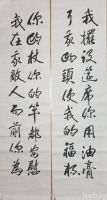 你的杖你的竿都安慰
我在我敵人面前你為
我擺設筵席你用油膏
了我的頭使我的福杯